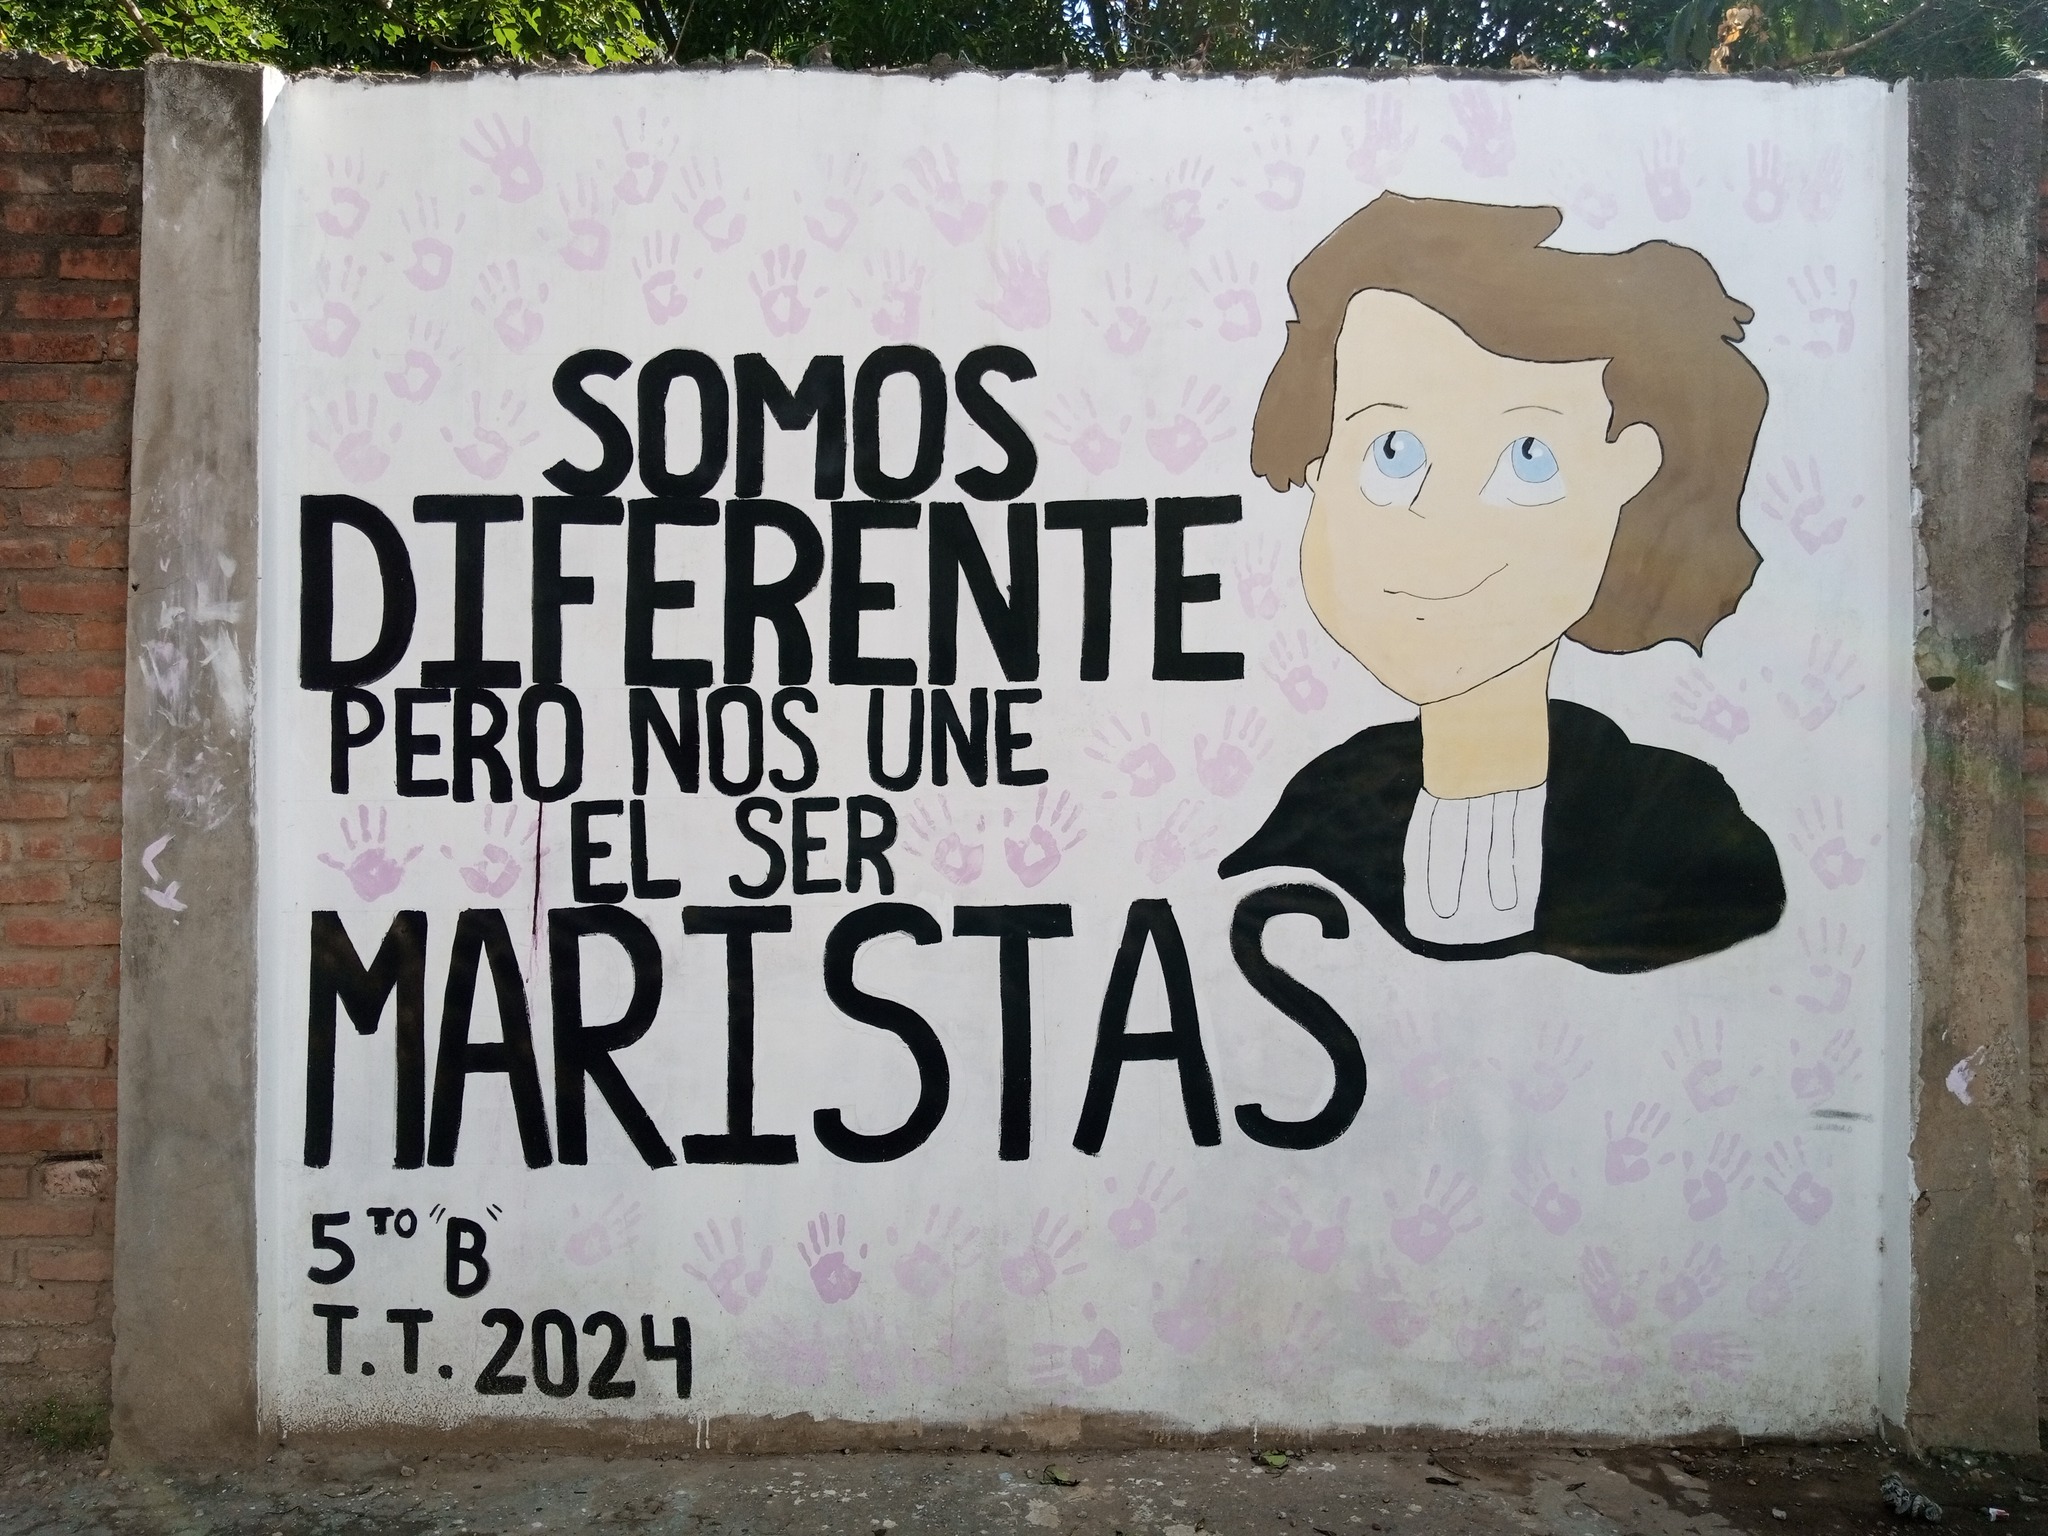 SOMOS
DIFERENTE
PERO NOS UNE
EL SER
MARISTAS
5TO "B"
T.T. 2024